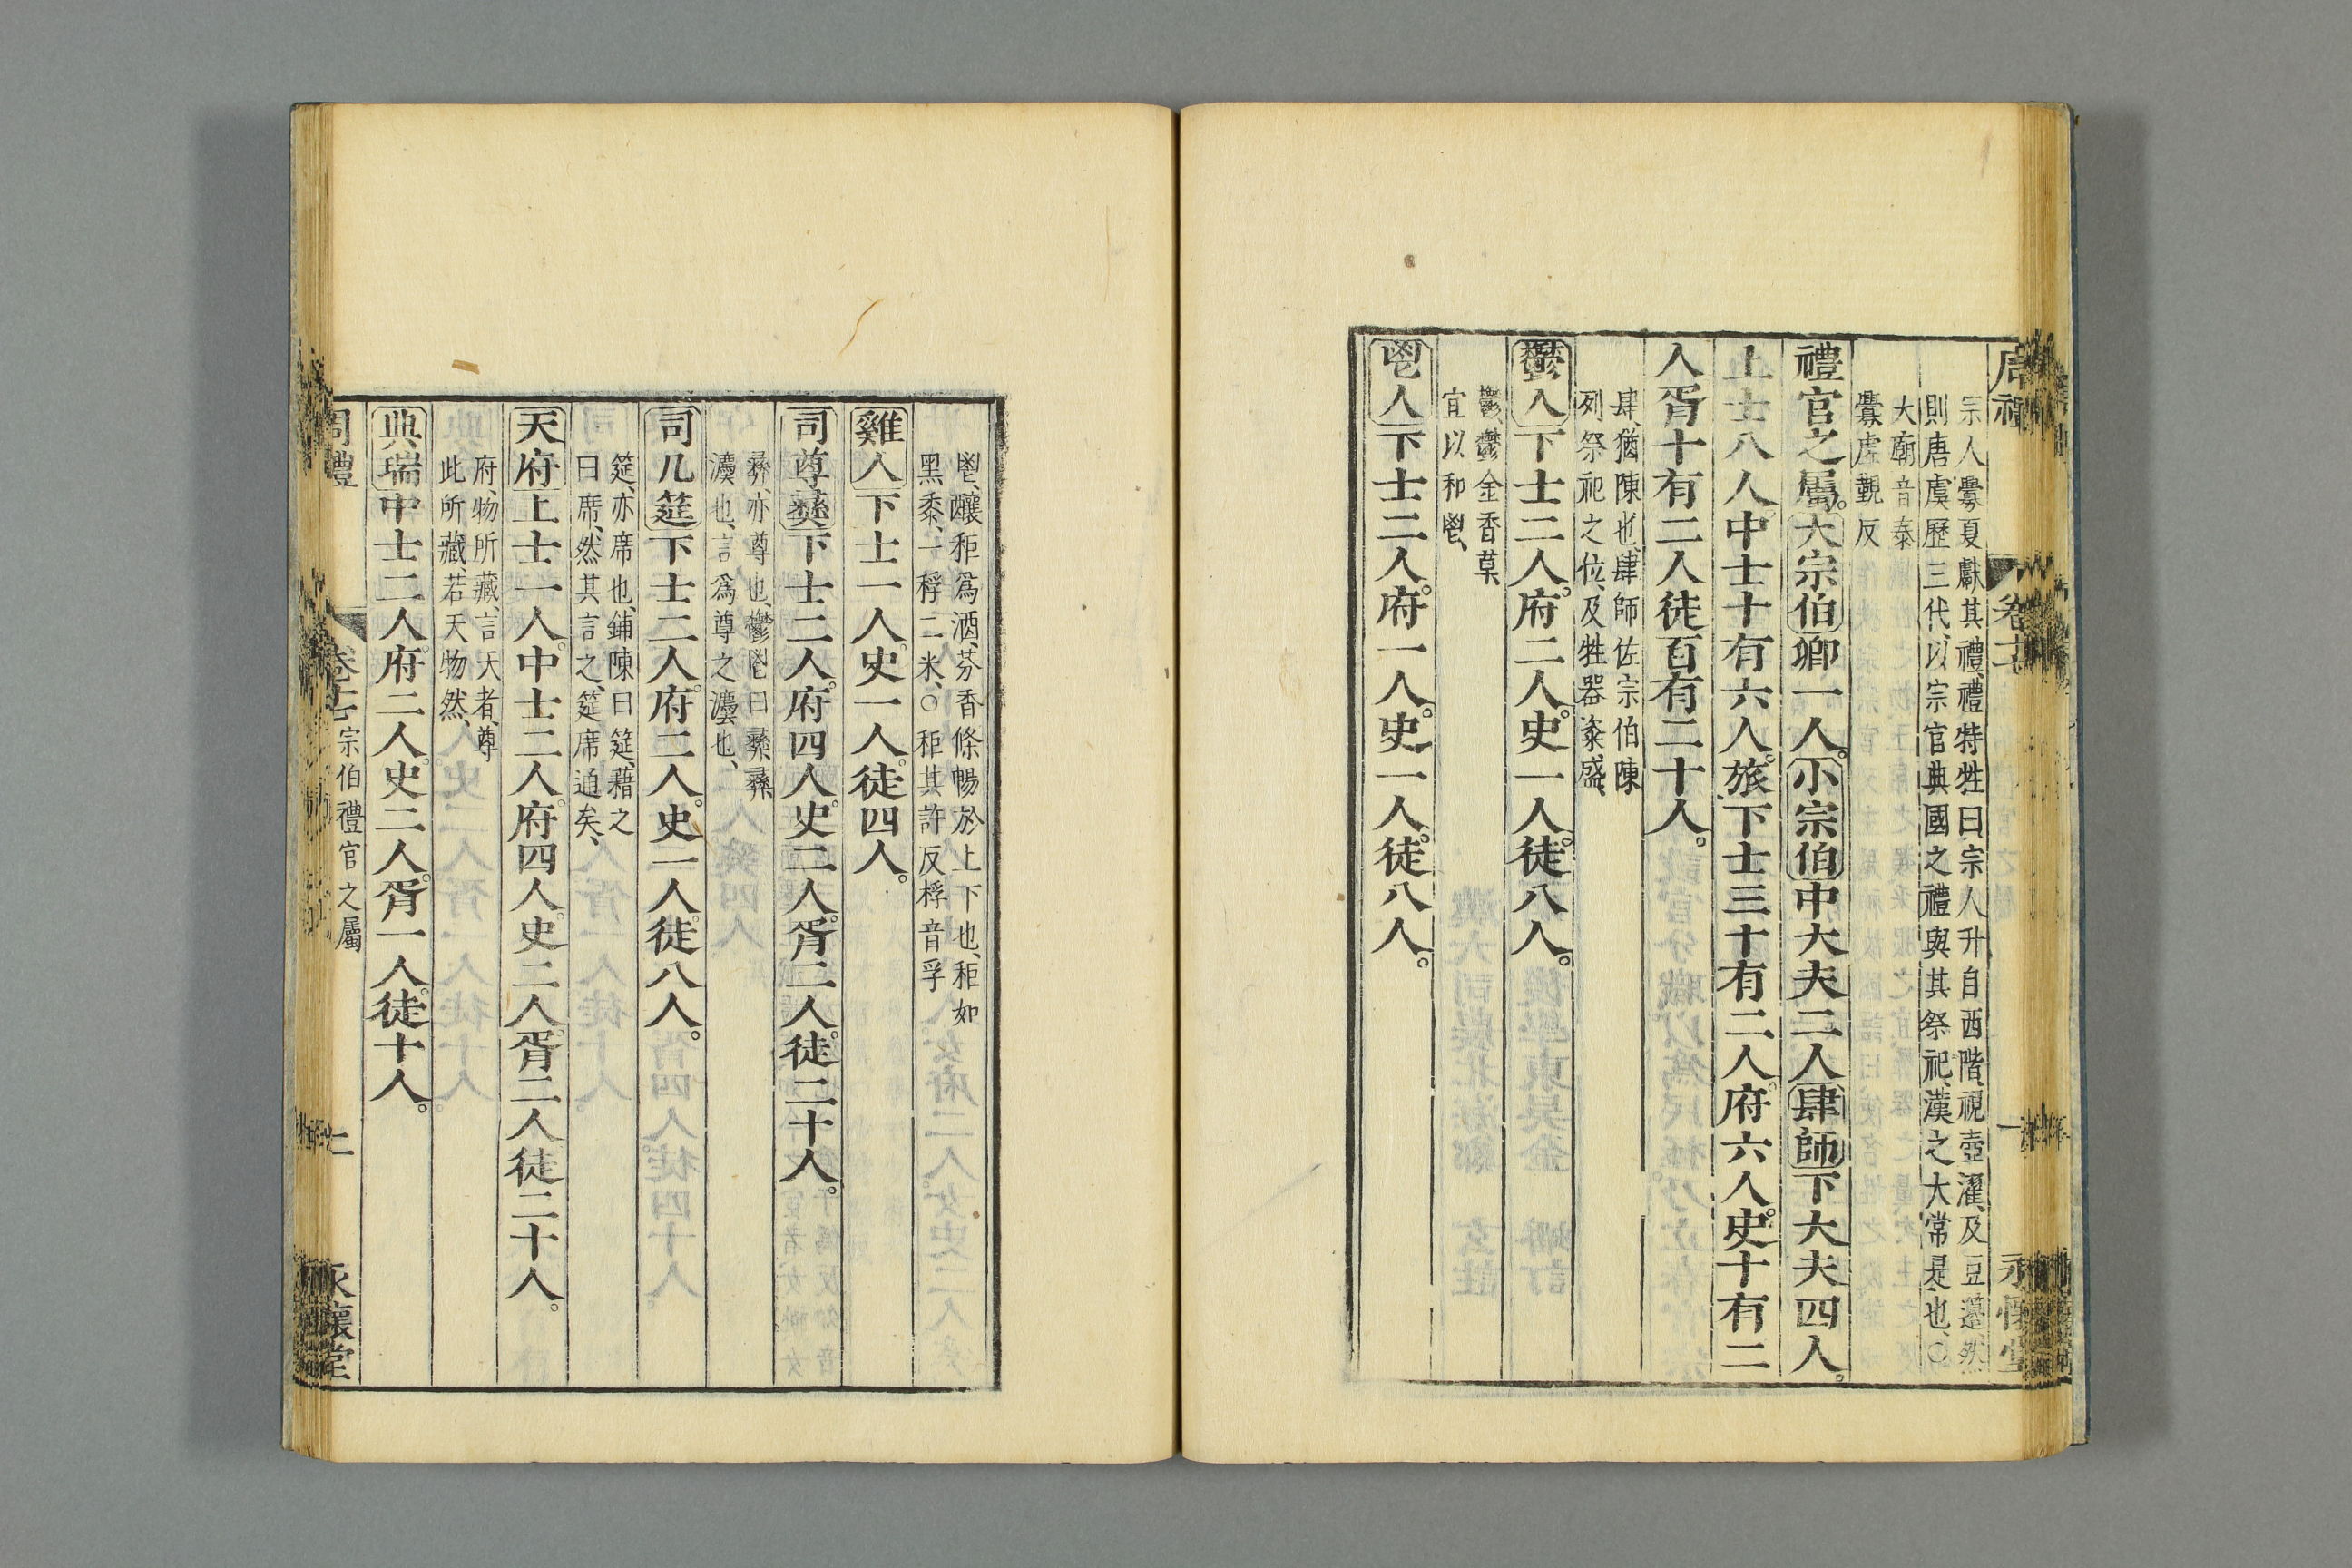 周禮 卷十七 一 永懷堂
宗人釁夏獻其禮、禮特牲曰、宗人升自西階、視壺濯、及豆籩、然
則唐虞歷三代、以宗官典國之禮與其祭祀、漢之大常是也、○
大廟音泰
釁虚觀反
禮官之屬。大宗伯卿一人。小宗伯中大夫二人肆師下大夫四人。
上士八人。中士十有六人。旅下士三十有二人。府六人。史十有二
人胥十有二人徒百有二十人。
肆、猶陳也、肆師佐宗伯陳
列祭祀之位、及牲器粢盛、
鬱人下士二人。府二人。史一人。徒八人。
鬱、鬱金香草、
宜以和鬯、
鬯人下士二人。府一人。史一人。徒八人。
鬯、釀秬為酒、芬香條暢於上下也、秬如
黑黍、一稃二米、○秬其許反稃音孚
雞人下士一人。史一人。徒四人。
司尊彝下士二人。府四人。史二人。胥二人。徒二十人。
彝、亦尊也、鬱鬯曰彝、彝、
灋也、言爲尊之灋也、
司几筵下士二人。府二人。史一人。徒八人。
筵、亦席也、鋪陳曰筵、藉之
曰席、然其言之、筵席通矣、
天府上士一人。中士二人。府四人。史二人。胥二人徒二十人。
府、物所藏、言天者、尊
此所藏、若天物然、
典瑞中士二人。府二人。史二人。胥一人。徒十人。
周禮 卷十七 宗伯禮官之屬 七 永懷堂